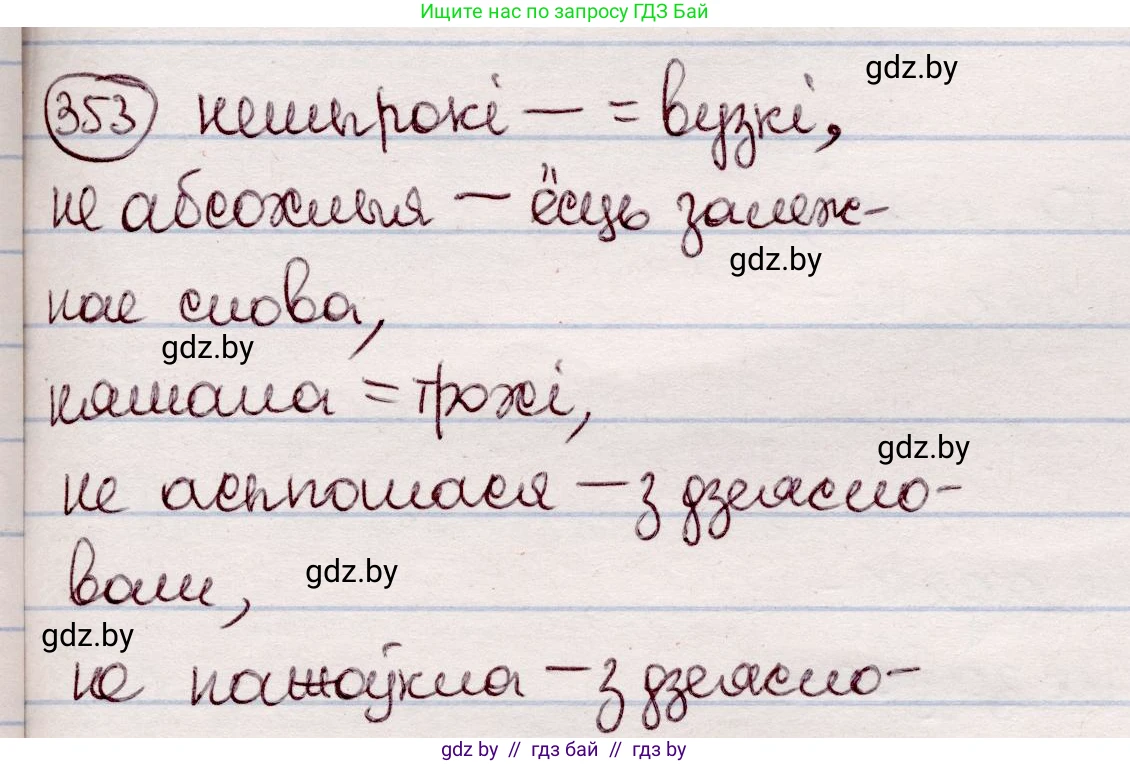 Ищите нас по запросу ГДЗ Бай
gdz.by
353 нешырокі — = вузкі,
не абсохлыя — ёсць залеж-
gdz.by
нае слова,
gdz.by
няшмала = трохі,
gdz.by
не асыпалася — з дзеясло-
вам, gdz.by
gdz.by
не пажоўкла — з дзеясло-
gdz by // гдз бай // гдз by